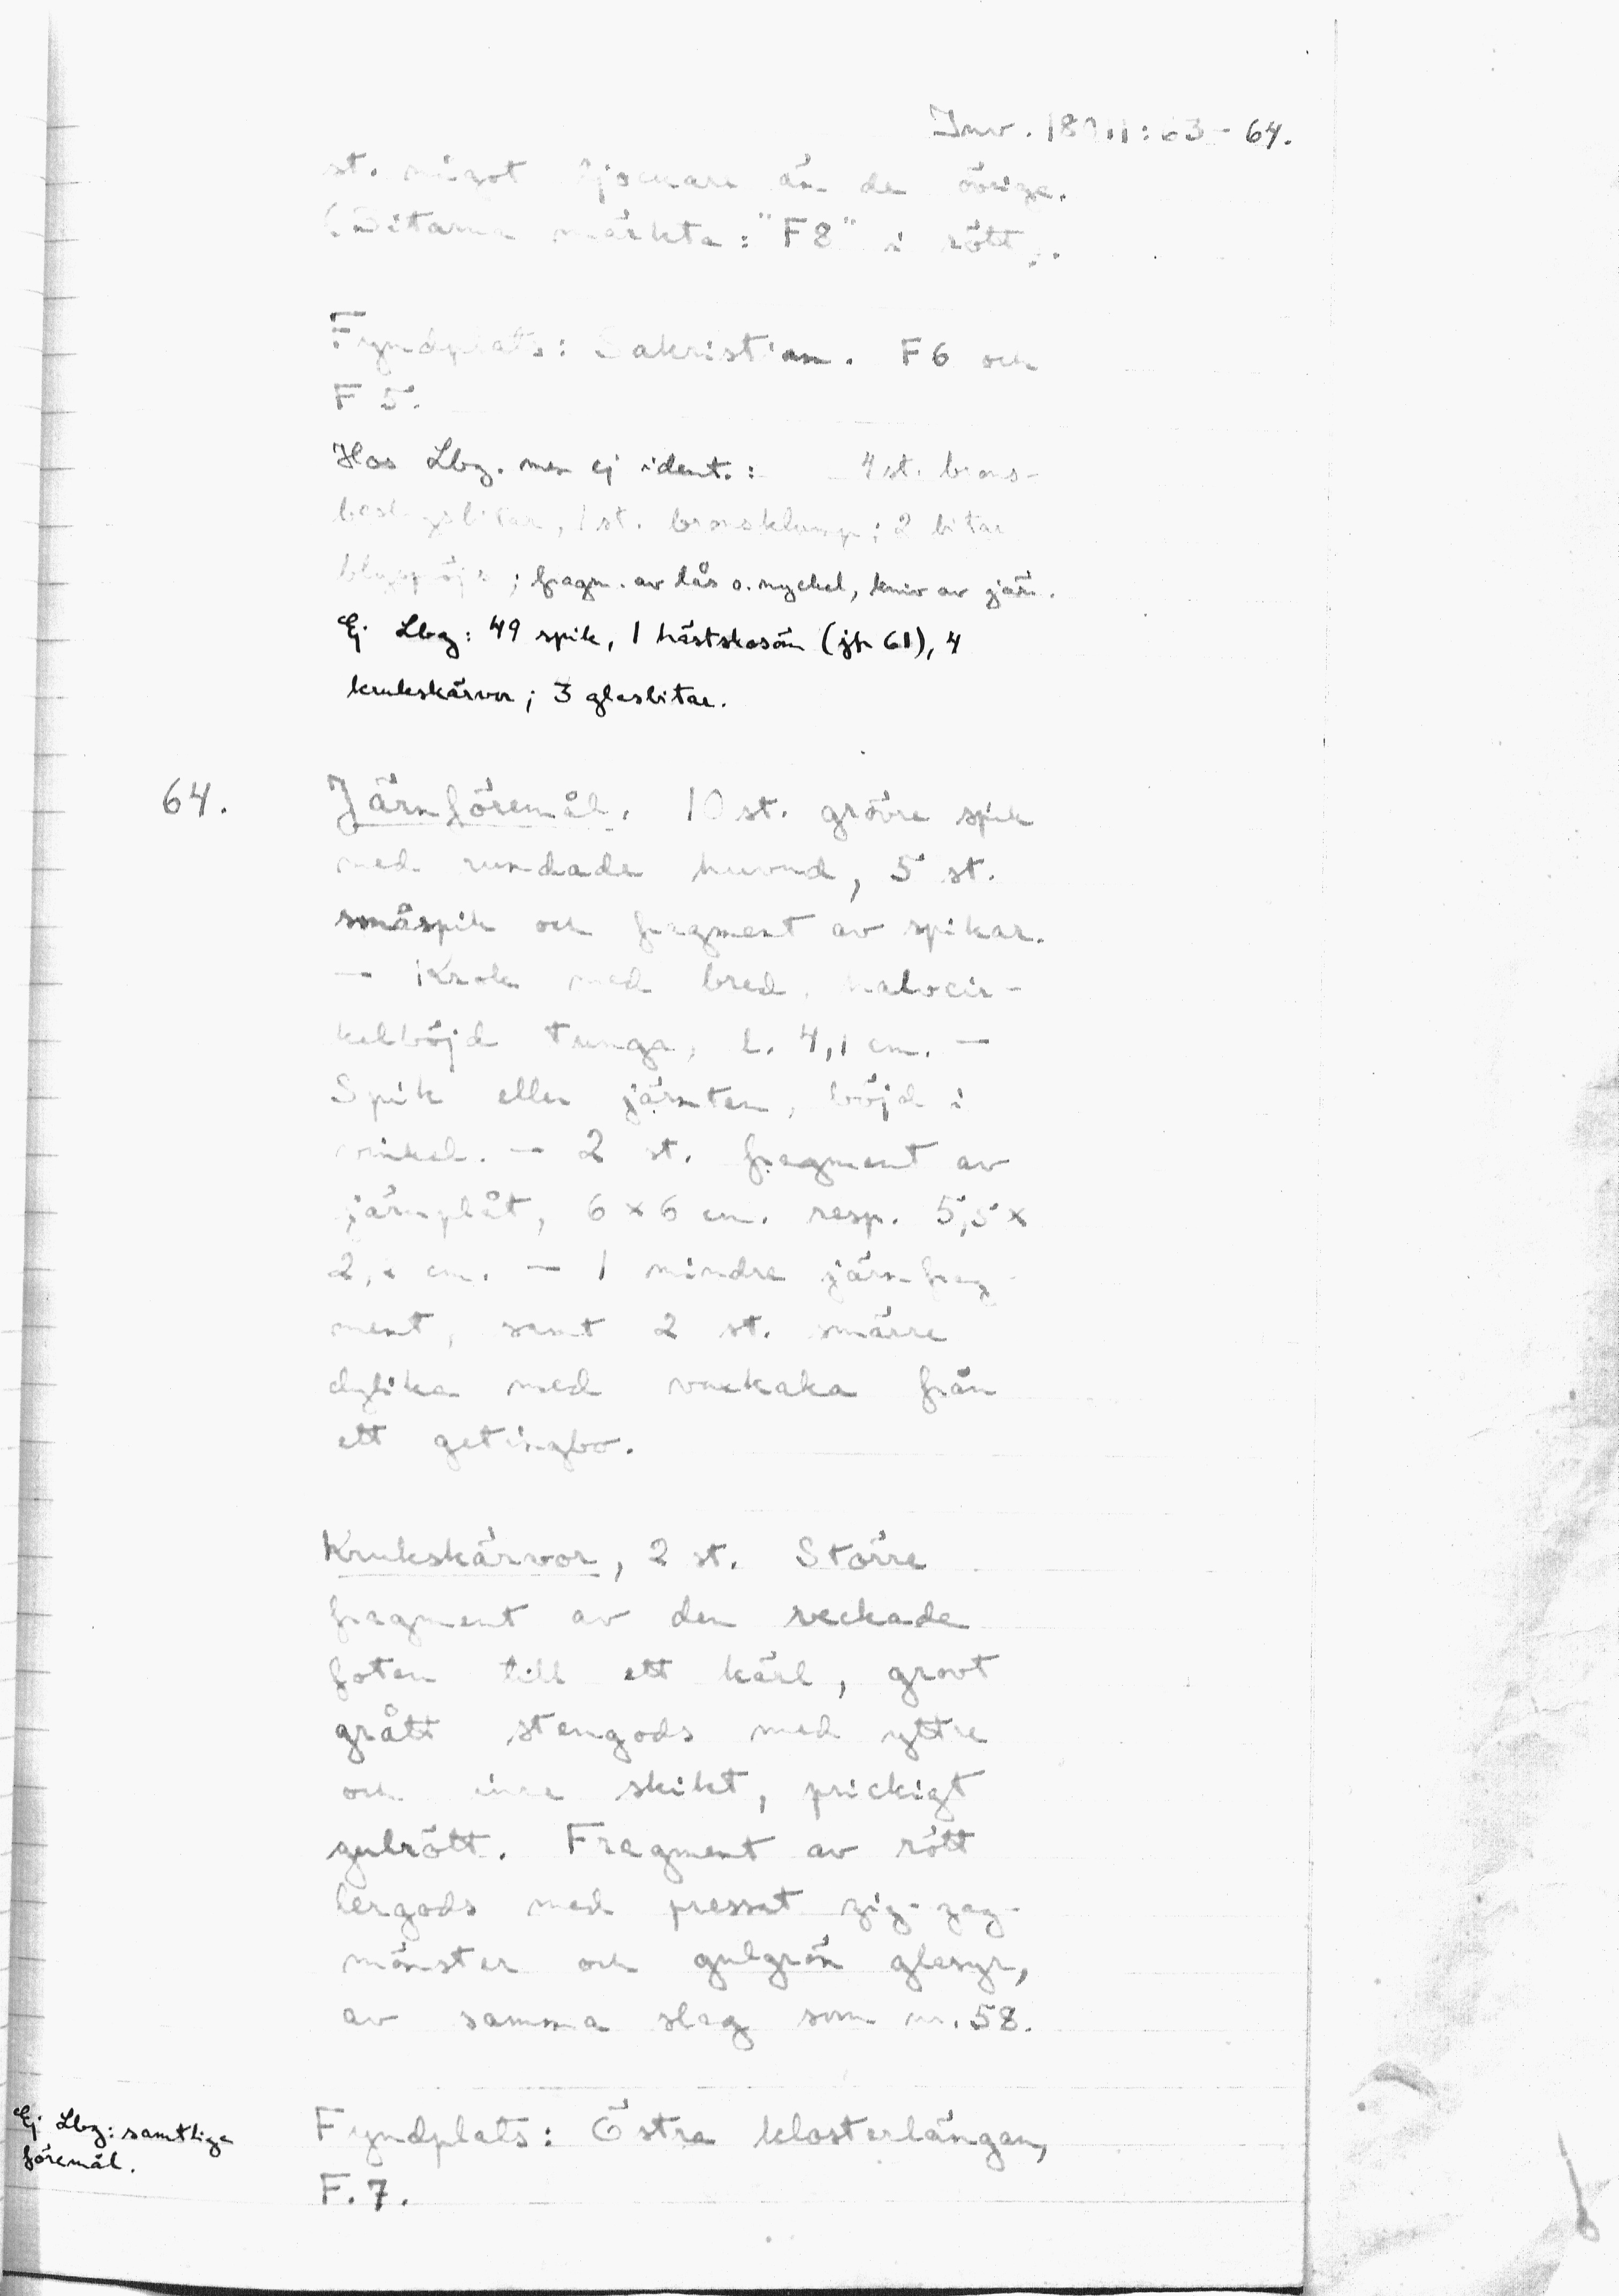 Inv. 18011:63-64.
st. något tjockare än de övriga.
(Bitarna märkta: "F8" i rött).
Fyndplats: Sakristian. F6 och
F 5.
Hos Lbg. men ej ident.: 4 st. brons-
beslagsbitar, 1 st. bronsklump; 2 bitar
; fragm. av lås o. nyckel, kniv av järn.
Ej Lbg: 49 spik, 1 hästskosöm (jfr 61), 4
krukskärvor; 3 glasbitar.
64. Järnföremål. 10 st. grövre spik
med rundade huvud, 5 st.
småspik och fragment av spikar.
— Krok med bred, halvcir-
kelböjd tunga, L. 4,1 cm. —
Spik eller järnten, böjd i
vinkel. — 2 st. fragment av
järnplåt, 6 x 6 cm. resp. 5,5 x
cm. — 1 mindre järnfrag-
ment, samt 2 st. smärre
dylika med vaxkaka från
ett getingbo.
Krukskärvor, 2 st. Större
fragment av den veckade
foten till ett kärl, grovt
grått stengods med yttre
och inre skikt, prickigt
gulrött. Fragment av rött
lergods med pressat zig-zag-
mönster och gulgrön glasyr,
av samma slag som nr. 58.
Ej Lbg: samtliga
föremål.
Fyndplats: Östra klosterlängan,
F. 7.